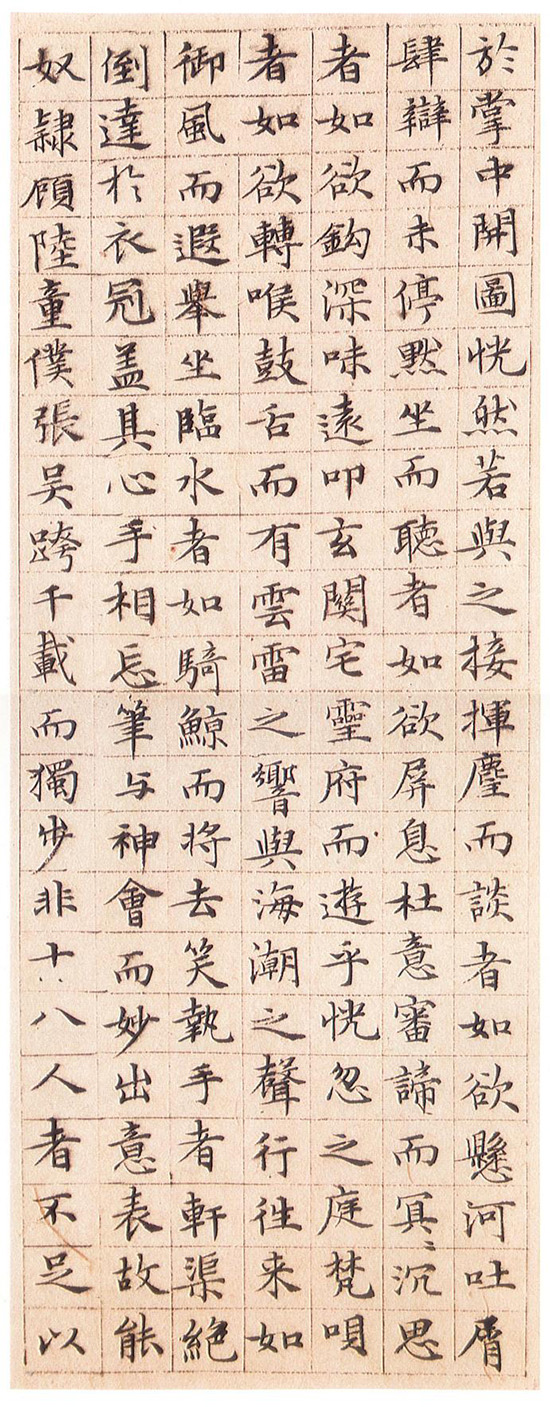 於掌中開圖恍然若與之接揮麈而談者如欲懸河吐屑
肆辯而未停默坐而聽者如欲屏息杜意審諦而冥〻沉思
者如欲鈎深味遠叩玄關宅靈府而遊乎恍忽之庭梵唄
者如欲轉喉鼓舌而有雲雷之響與海潮之聲行徃来如
御風而遐舉坐臨水者如騎鯨而将去笑執手者軒渠絕
倒達於衣冠盖其心手相忘筆与神會而妙出意表故能
奴隸顧陸童僕張吳跨千載而獨步非十八人者不足以